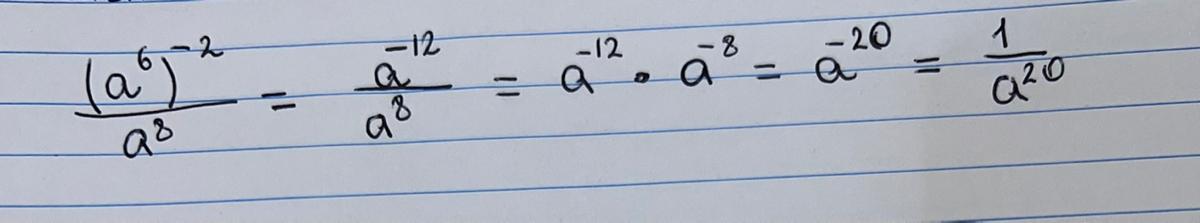 (a⁶)⁻²/a⁸ = a⁻¹²/a⁸ = a⁻¹² • a⁻⁸ = a⁻²⁰ = 1/a²⁰